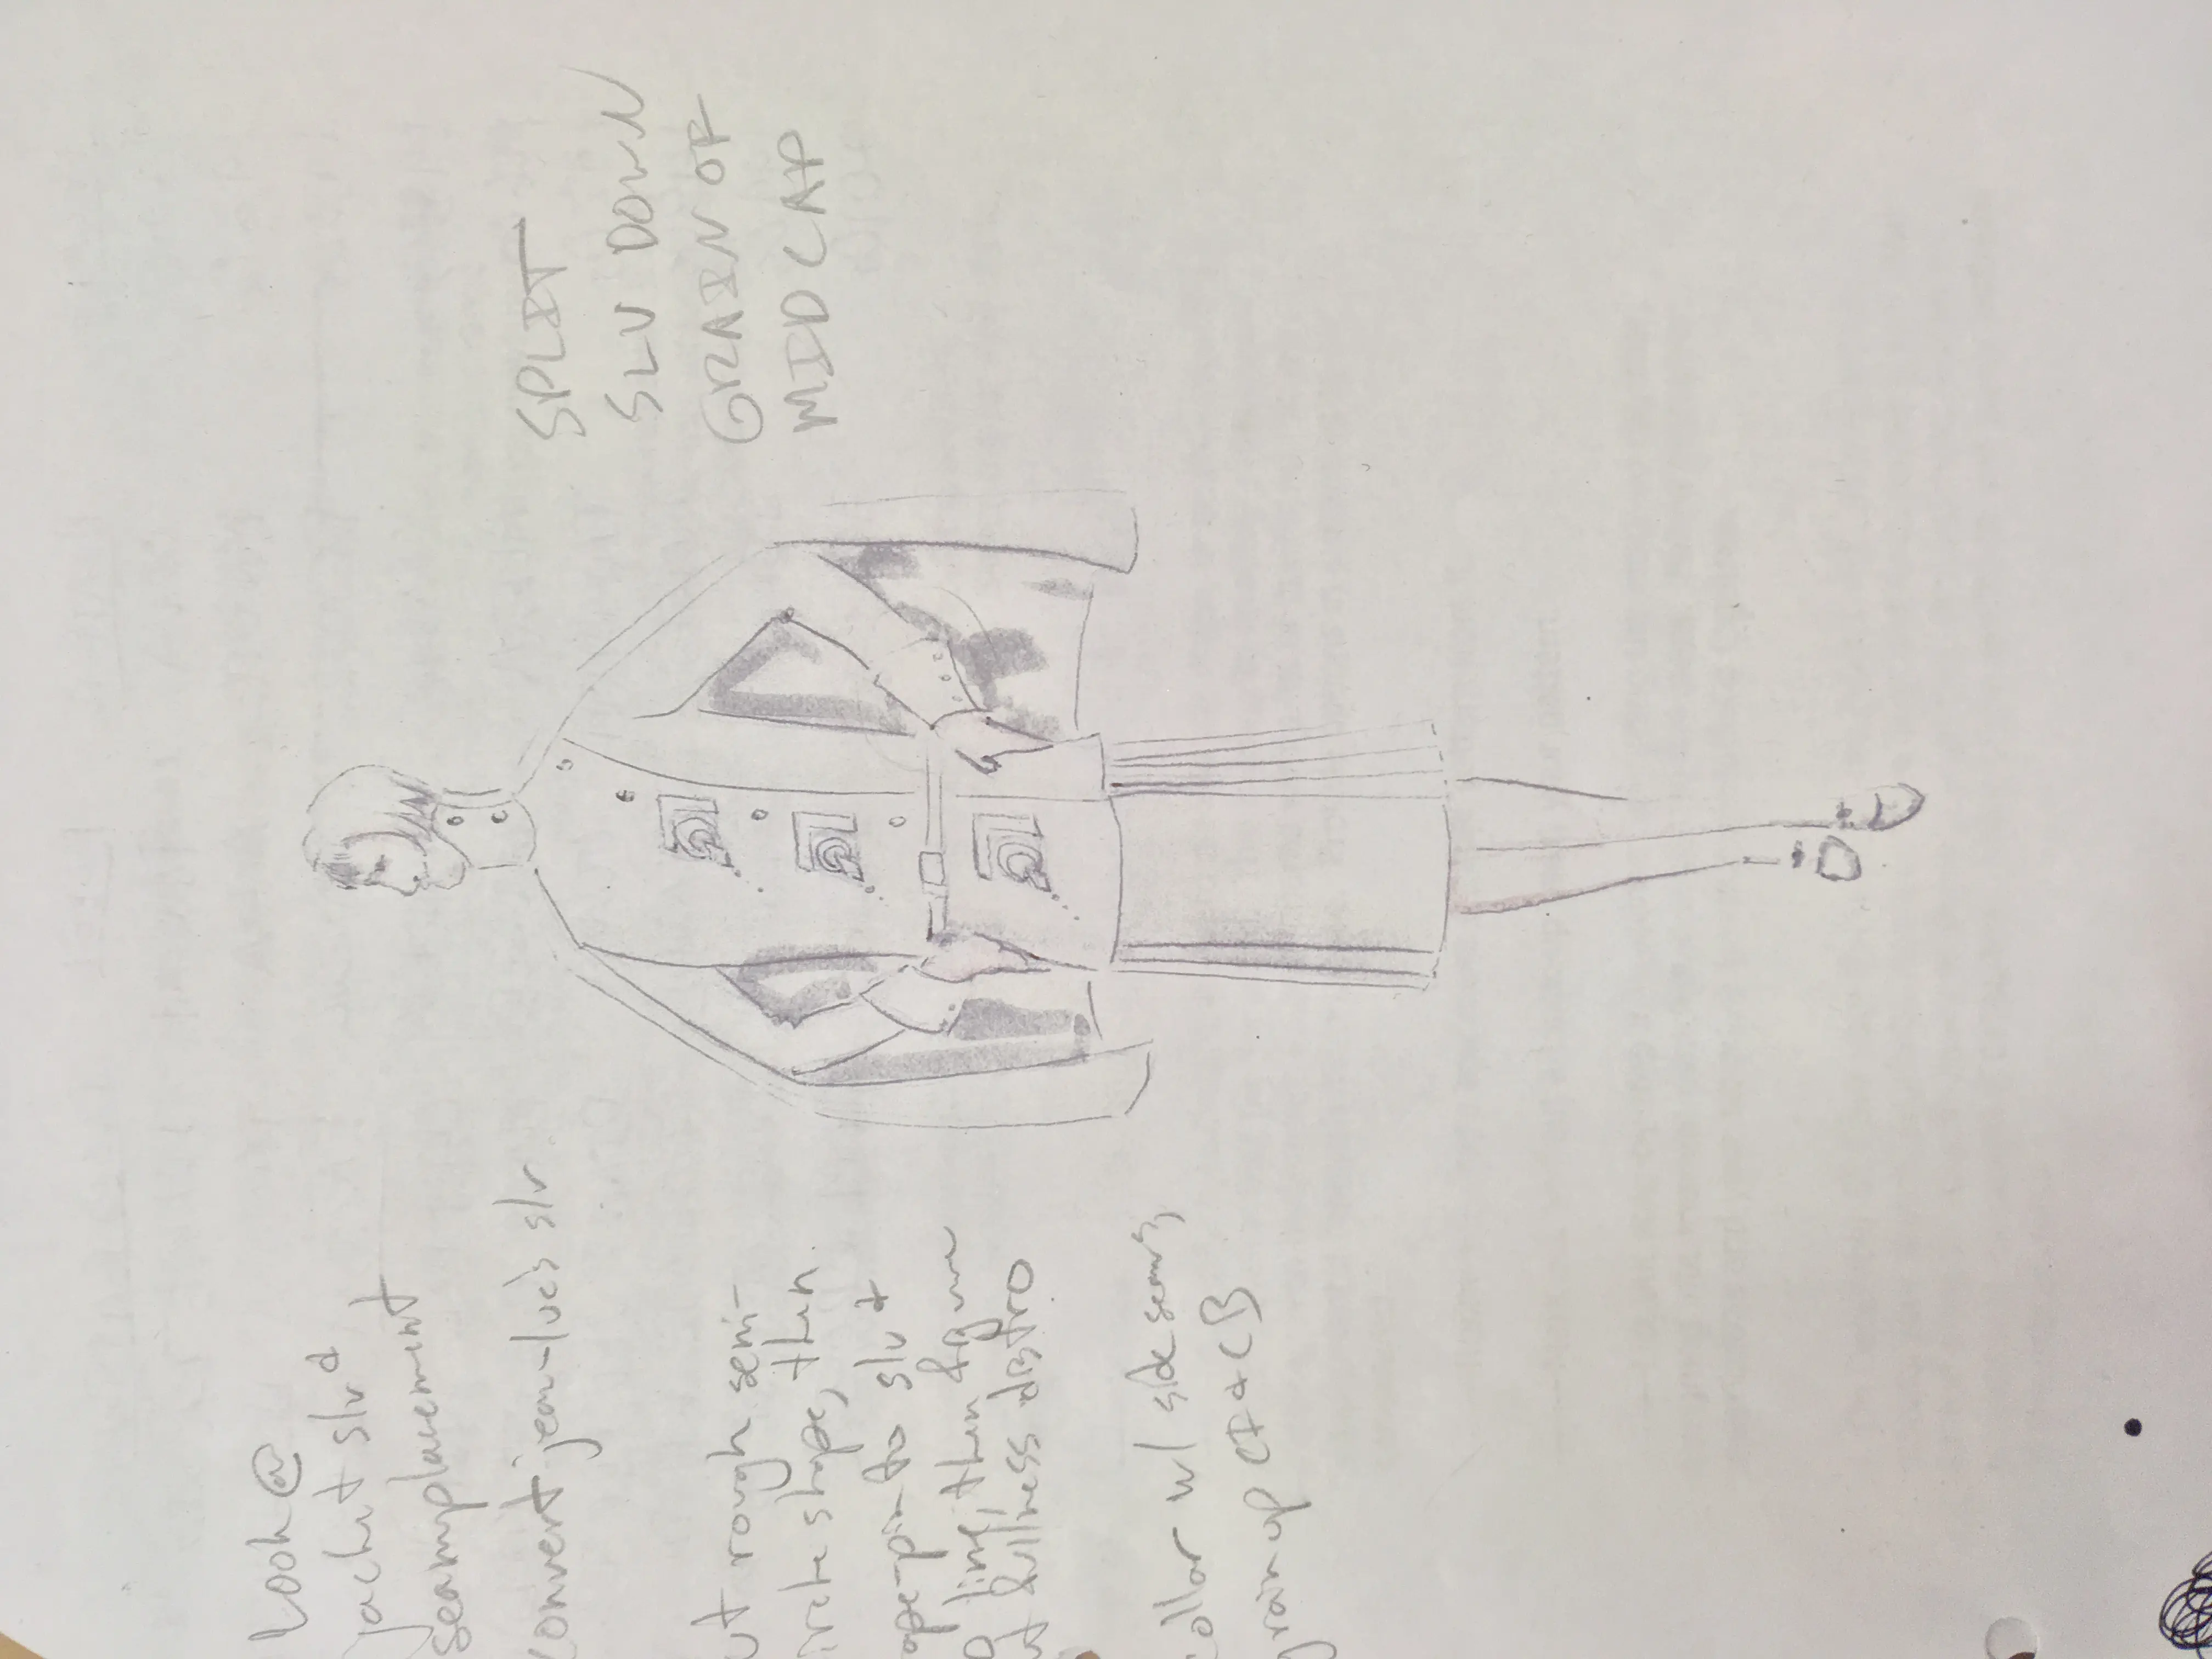 Look @
jacket slv &
seam placement
convert jean-luc's slv
ut rough semi-
ircle shape, then
ape-pin to slv +
line, then figure
ut fullness distro
ollar w/ side seams,
grain up CF + CB
SPLIT
SLV DOWN
GRAIN OF
MID CAP